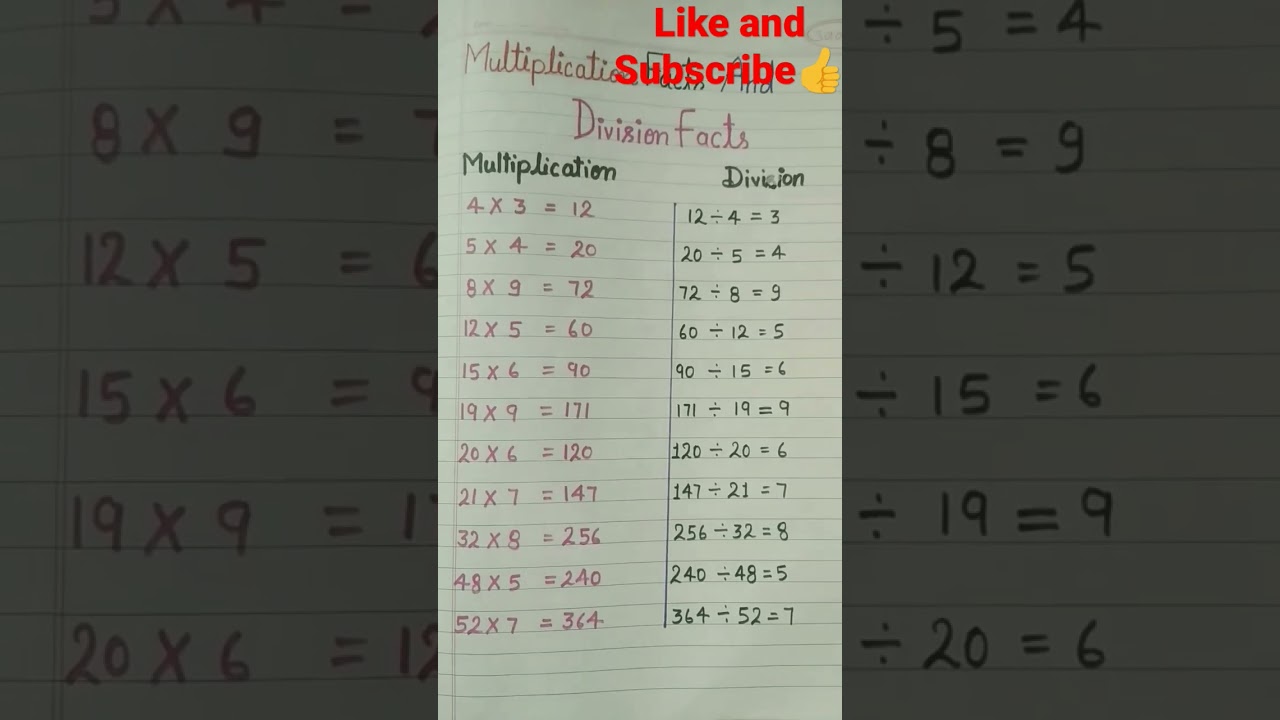 Like and
Subscribe👍
Multiplication Facts And
Division Facts
Multiplication Division
4 X 3 = 12 12 ÷ 4 = 3
5 X 4 = 20 20 ÷ 5 = 4
8 X 9 = 72 72 ÷ 8 = 9
12 X 5 = 60 60 ÷ 12 = 5
15 X 6 = 90 90 ÷ 15 = 6
19 X 9 = 171 171 ÷ 19 = 9
20 X 6 = 120 120 ÷ 20 = 6
21 X 7 = 147 147 ÷ 21 = 7
32 X 8 = 256 256 ÷ 32 = 8
48 X 5 = 240 240 ÷ 48 = 5
52 X 7 = 364 364 ÷ 52 = 7